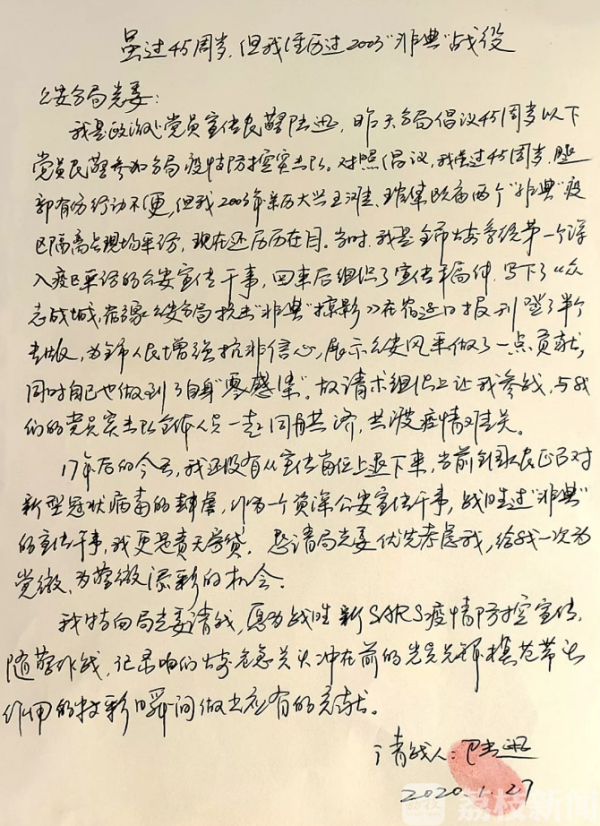 虽过45周岁,但我经历过2003"非典"战役
公安分局党委:
我是政治处党员宣传民警陆迅,昨天分局倡议45周岁以下
党员民警参加分局疫情防控突击队。对照倡议,我虽过45周岁,腿
部有伤行动不便,但我2003年亲历大兴王滩、两个"非典"疫
区隔离点现场采访,现在还历历在目。当时,我是全市公安系统第一个深
入疫区采访的公安宣传干事,回来后组织了宣传稿件,写下了《众
志成城,宿豫公安分局抗击"非典"掠影》在宿迁日报刊登了半个
专版,为全市人民增强抗非信心,展示公安风采做了一点贡献,
同时自己也做到了自身"零感染"。故请求组织上让我参战,与我
们的党员突击队全体人员一起同舟共济,共渡疫情难关。
17年后的今天,我还没有从宣传岗位上退下来,当前全国人民正面对
新型冠状病毒的肆虐,作为一个资深公安宣传干事,战胜过"非典"
的宣传干事,我更是责无旁贷。恳请局党委优先考虑我,给我一次为
党徽、为警徽添彩的机会。
我特向局党委请战,愿为战胜新SARS疫情防控宣传,
随警作战,记录咱们公安危急关头冲在前的党员先锋模范带头
作用的精彩瞬间做出应有的贡献。
请战人:陆迅
2020.1.27
荔枝新闻